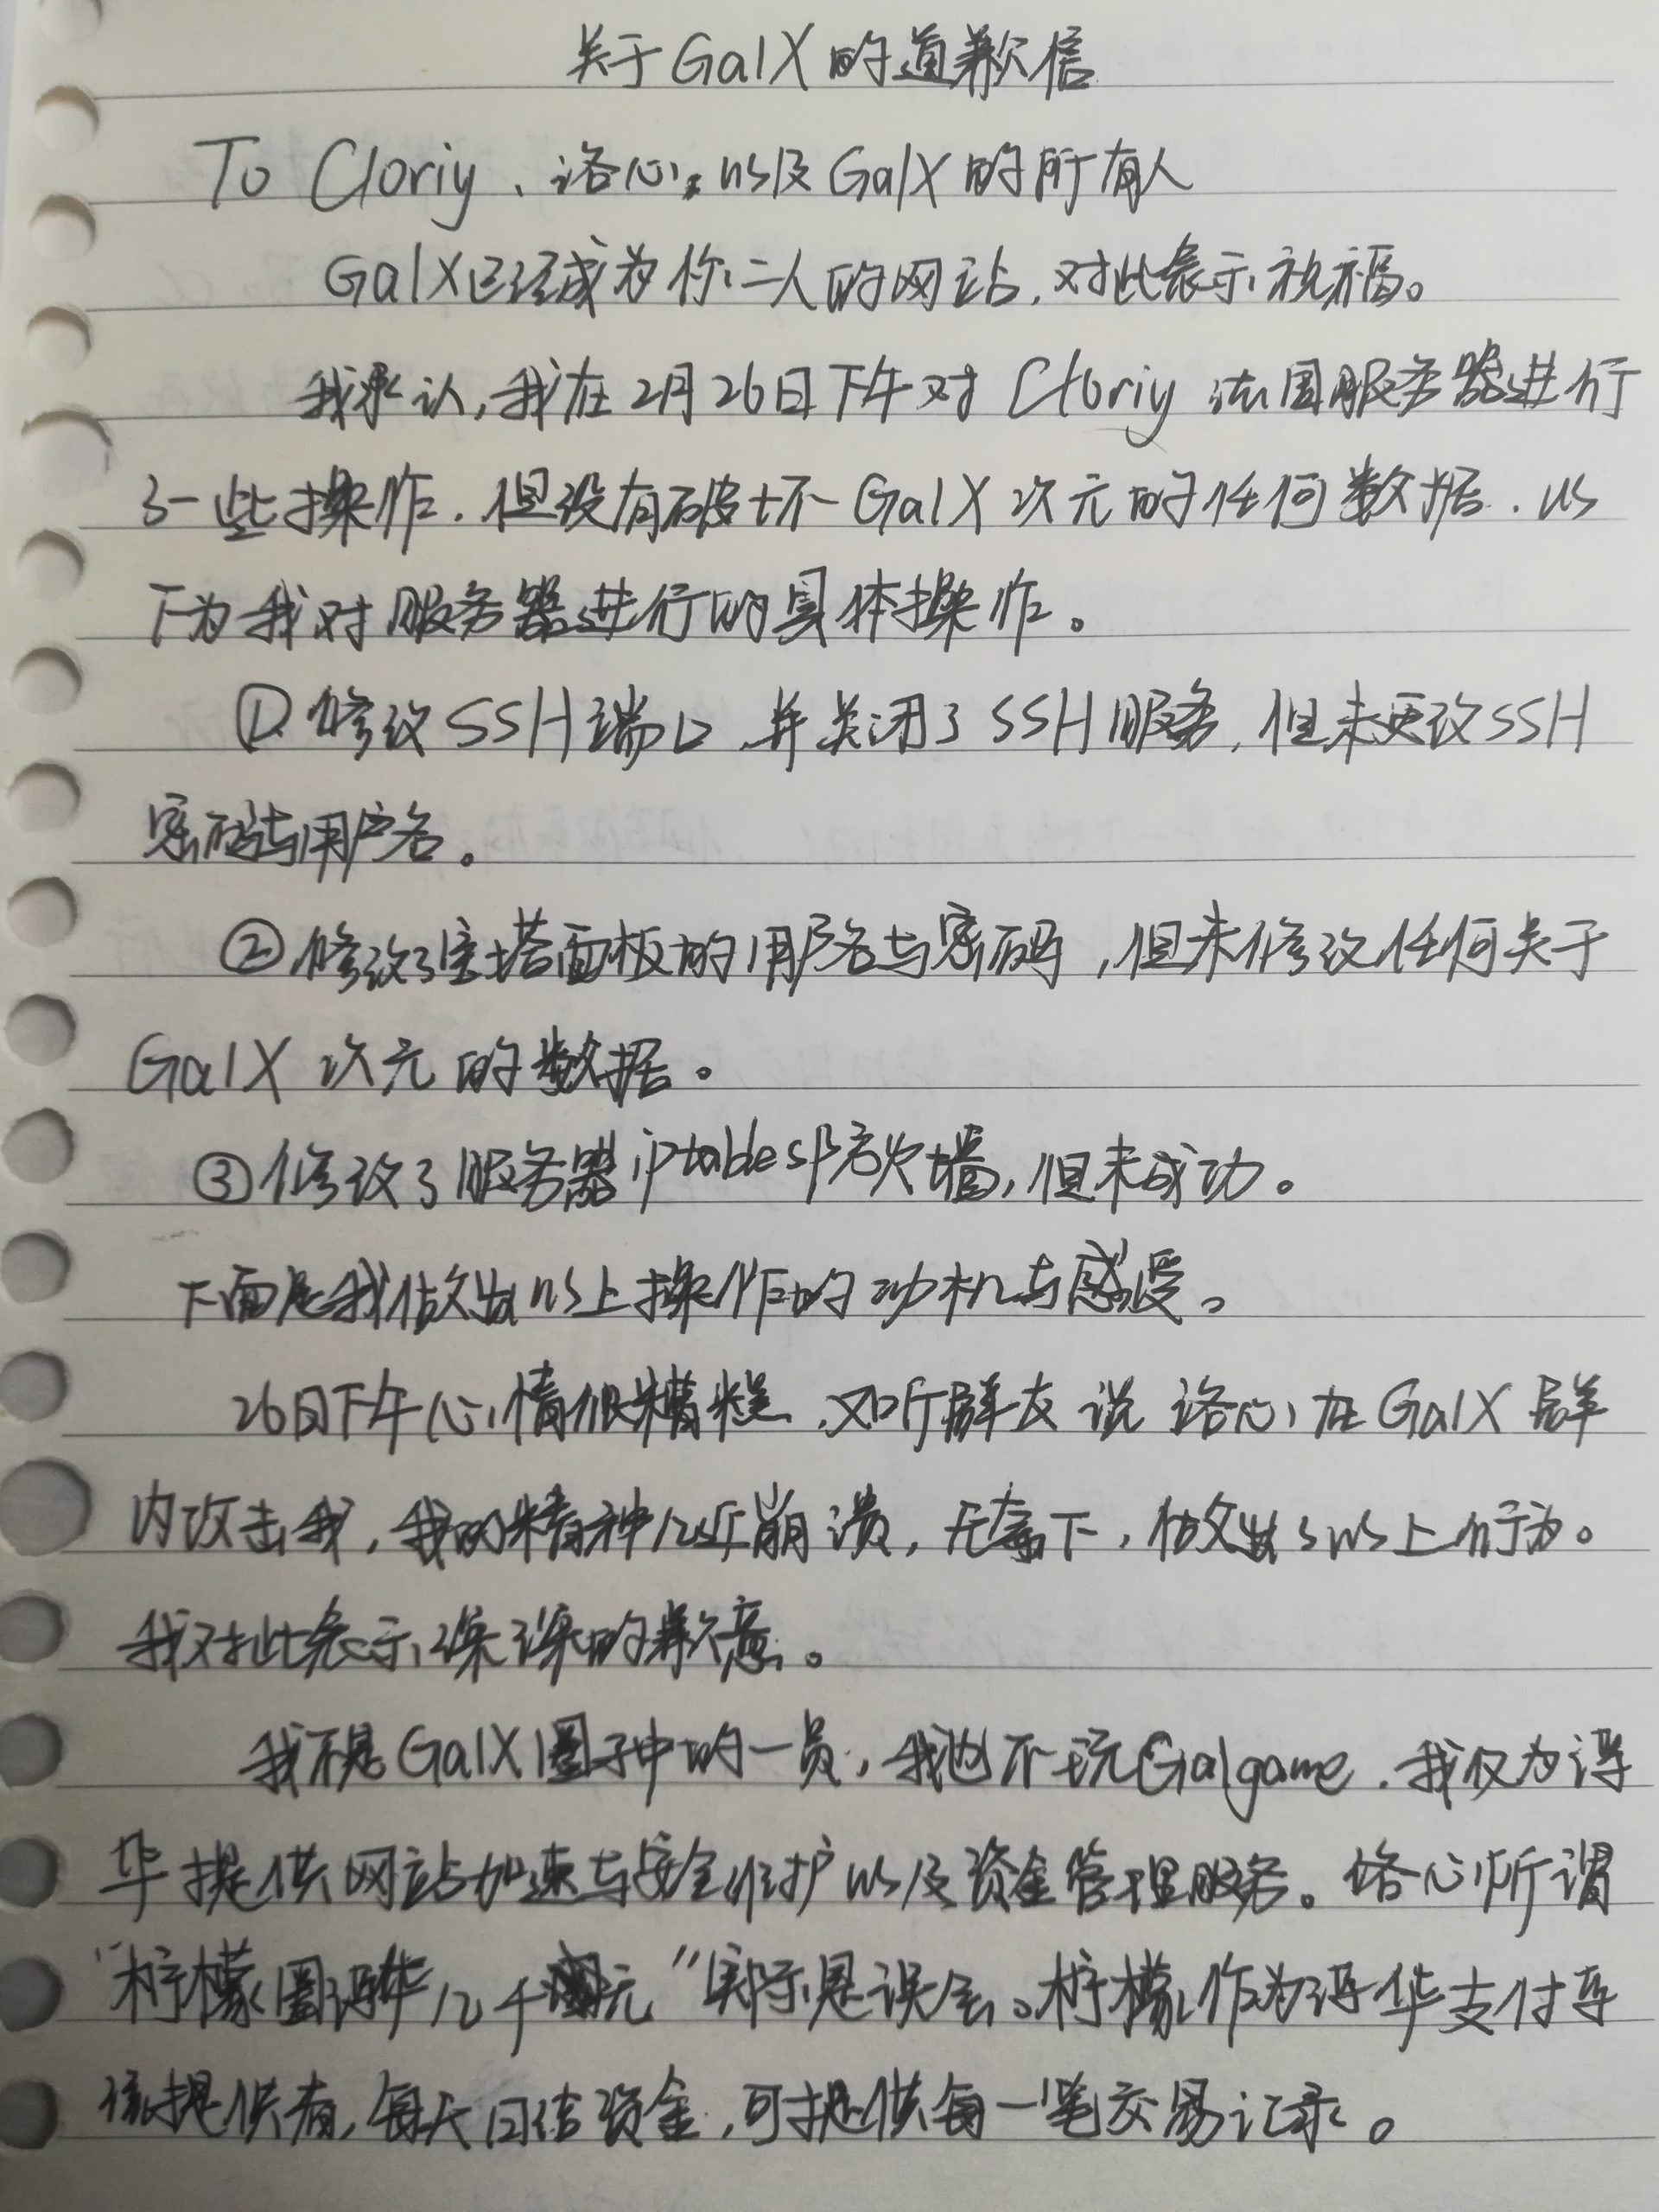 关于GalX的道歉信
To Cloriy、洛心,以及GalX的所有人
GalX已经成为你二人的网站,对此表示祝福。
我承认,我在2月26日下午对Cloriy法国服务器进行
了一些操作.但没有破坏GalX次元的任何数据.以
下为我对服务器进行的具体操作。
①修改SSH端口,并关闭了SSH服务,但未更改SSH
密码与用户名。
②修改了宝塔面板的用户名与密码,但未修改任何关于
GalX次元的数据。
③修改了服务器iptables防火墙,但未成功。
下面是我做出以上操作的动机与感受。
26日下午心情很糟糕,又听群友说洛心在GalX群
内攻击我,我的精神几近崩溃,无奈下,做出了以上行为。
我对此表示深深的歉意。
我不是GalX圈子中的一员,我也不玩Galgame.我仅为
华提供网站加速与安全维护以及资金管理服务。洛心所谓
“柠檬圈 华几千 元”实际是误会。柠檬作为 华支付
提供者,每天日结资金,可提供每一笔交易记录。